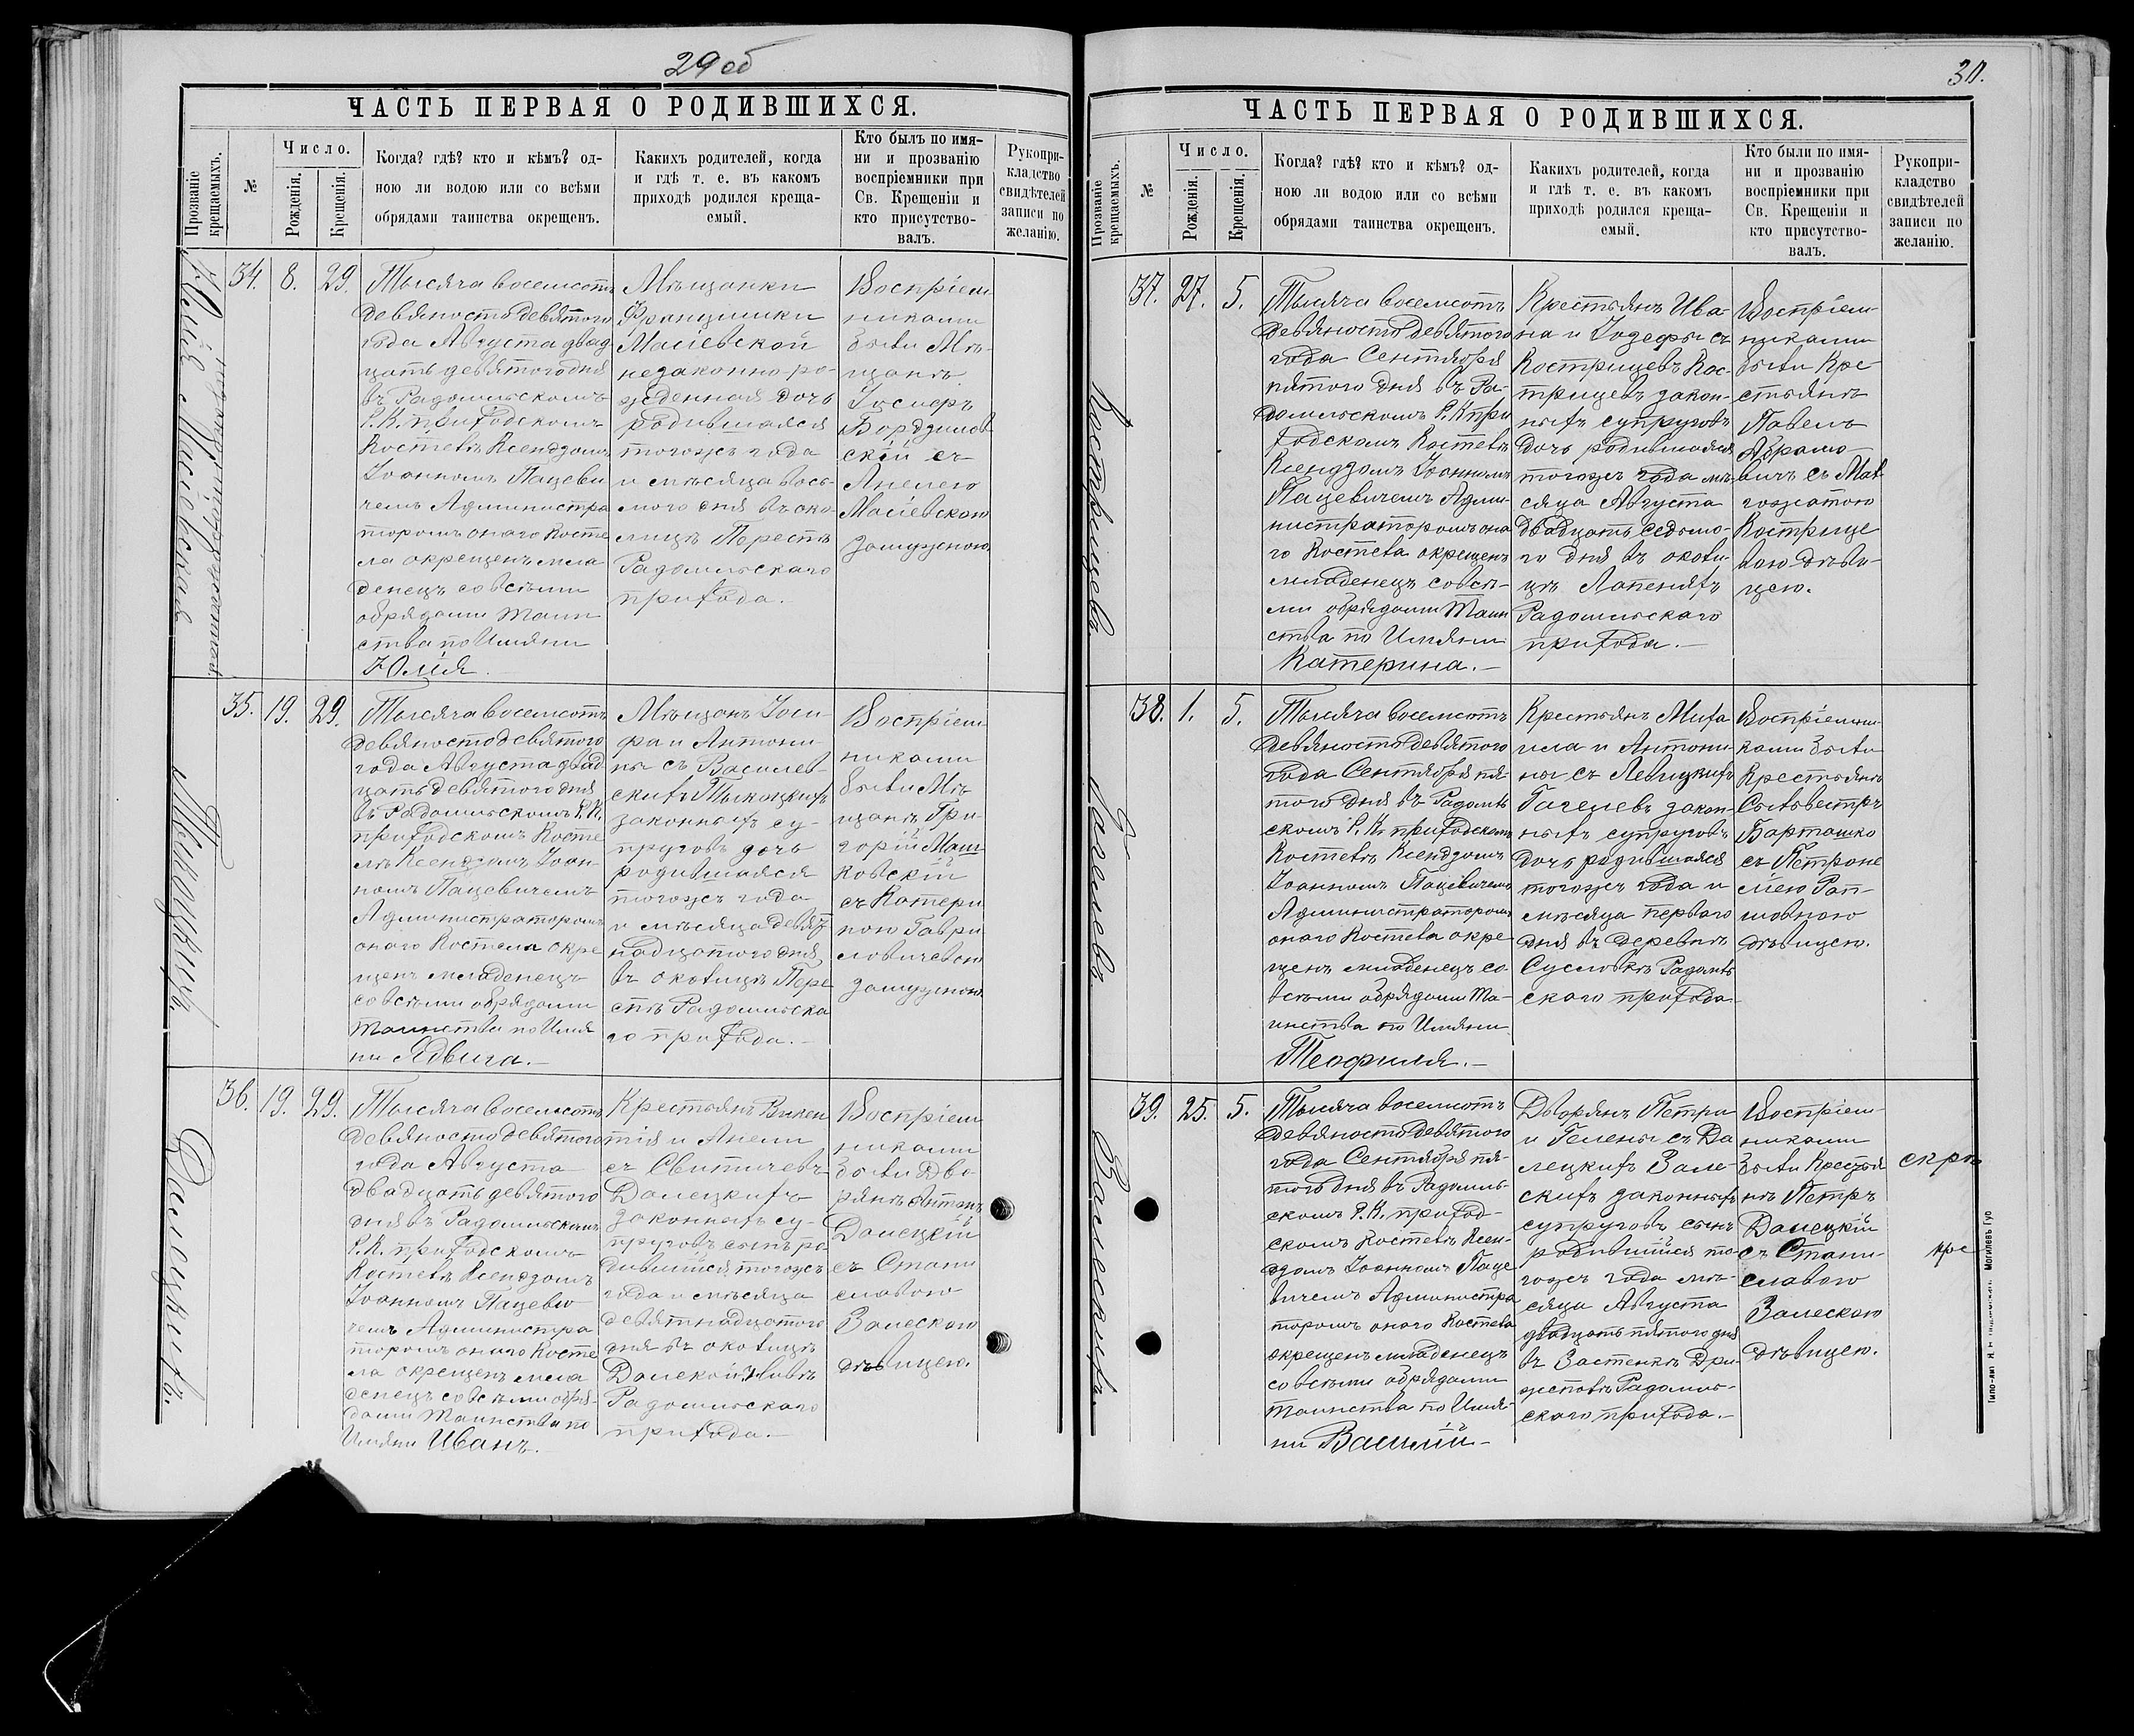 29 об
ЧАСТЬ ПЕРВАЯ О РОДИВШИХСЯ.
Прозваніе крещаемыхъ.
№
Число.
Рожденія.
Крещенія.
Когда? гдѣ? кто и кѣмъ? од-
ною ли водою или со всѣми
обрядами таинства окрещенъ.
Какихъ родителей, когда
и гдѣ т. е. въ какомъ
приходѣ родился креща-
емый.
Кто былъ по имя-
ни и прозванію
воспріемники при
Св. Крещеніи и
кто присутство-
валъ.
Рукопри-
кладство
свидѣтелей
записи по
желанію.
Юлія Масіевская
незаконнорожденная
34.
8.
29.
Тысяча восемсотъ
девяностодевятого
года Августа двад
цать девятого дня
въ Радомльскомъ
Р. К. приходскомъ
Костелѣ Ксендзомъ
Іоанномъ Пацеви
чемъ Администра
торомъ оного Косте
ла окрещенъ мла
денецъ со всѣми
обрядами Таин
ства по Имяни
Юлія.
Мѣщанки
Францишки
Масіевской
незаконно-ро-
жденная дочь
родившаяся
тогожъ года
и мѣсяца вось-
мого дня въ око-
лицѣ Перестѣ
Радомльскаго
прихода.
Воспріем
никами
были Мѣ-
щанъ
Іосифъ
Бордзилов
скій съ
Анелею
Масіевскою
замужною.
Тыкоцкихъ.
35.
19.
29.
Тысяча восемсотъ
девяностодевятого
года Августа двад
цать девятого дня
въ Радомльскомъ Р. К.
приходскомъ Косте
лѣ Ксендзомъ Іоан
номъ Пацевичемъ
Администраторомъ
оного Костела окре
щенъ младенецъ
со всѣми обрядами
Таинства по Имя
ни Ядвига.-
Мѣщанъ Іоси
фа и Антони-
ны съ Василев-
скихъ Тыкоцкихъ
законныхъ су-
пруговъ дочь
родившаяся
тогожъ года
и мѣсяца девят
надцатого дня
въ околицѣ Пере
стѣ Радомльска
го прихода.-
Воспріем
никами
были Мѣ
щанъ Гри-
горій Маш
ковскій
съ Катери
ною Гаври
ловичевою
замужною.
Далецкихъ.
36.
19.
29.
Тысяча восемсотъ
девяностодевятого
года Августа
двадцать девятого
дня въ Радомльскомъ
Р. К. приходскомъ
Костелѣ Ксендзомъ
Іоанномъ Пацеви
чемъ Администра
торомъ оного Косте
ла окрещенъ мла
денецъ со всѣми обря-
дами Таинства по
Имяни Иванъ.
Крестьянъ Викен
тія и Анели
съ Свитичевъ
Далецкихъ
законныхъ су-
пруговъ сынъ ро
дившійся тогожъ
года и мѣсяца
девятнадцатого
дня въ околицѣ
Далекой Нивѣ
Радомльскаго
прихода.-
Воспріем
никами
были Дво-
рянъ Антонъ
Далецкій
съ Стани
славою
Залескою
дѣвицею.
30.
ЧАСТЬ ПЕРВАЯ О РОДИВШИХСЯ.
Прозваніе крещаемыхъ.
№
Число.
Рожденія.
Крещенія.
Когда? гдѣ? кто и кѣмъ? од-
ною ли водою или со всѣми
обрядами таинства окрещенъ.
Какихъ родителей, когда
и гдѣ т. е. въ какомъ
приходѣ родился креща-
емый.
Кто были по имя-
ни и прозванію
воспріемники при
Св. Крещеніи и
кто присутство-
валъ.
Рукопри-
кладство
свидѣтелей
записи по
желанію.
Кострицевъ
37.
27.
5.
Тысяча восемсотъ
девяностодевятого
года Сентября
пятого дня въ Ра-
домльскомъ Р. К при
ходскомъ Костелѣ
Ксендзомъ Іоанномъ
Пацевичемъ Адми-
нистраторомъ она
го Костела окрещенъ
младенецъ со всѣ-
ми обрядами Таин
ства по Имяни
Катерина.-
Крестьянъ Ива-
на и Іозефы съ
Кострицевъ Кос-
трицевъ закон-
ныхъ супруговъ
дочь родившаяся
тогожъ года мѣ-
сяца Августа
двадцать седьмо-
го дня въ околи-
цѣ Лапеняхъ
Радомльскаго
прихода.-
Воспріем-
никами
были Кре-
стьянъ
Павелъ
Абрамо-
вичъ съ Мал
гожатою
Кострице
вою дѣви-
цею.
Гагелевъ
38.
1.
5.
Тысяча восемсотъ
девяностодевятого
года Сентября пя-
того дня въ Радомль
скомъ Р. К. приходскомъ
Костелѣ Ксендзомъ
Іоанномъ Пацевичемъ
Администраторомъ
оного Костела окре-
щенъ младенецъ со-
всѣми обрядами Та-
инства по Имяни
Теофиля.-
Крестьянъ Миха
ила и Антони-
ны съ Левицкихъ
Гагелевъ закон-
ныхъ супруговъ
дочь родившаяся
тогожъ года и
мѣсяца перваго
дня въ деревнѣ
Сусловкѣ Радомль
скаго прихода
Воспріемни-
ками были
Крестьянъ
Сильвестръ
Барташко
съ Петроне
лею Рап-
ловною
дѣвицею.
Залескихъ
39.
25.
5.
Тысяча восемсотъ
девяностодевятого
года Сентября пя-
того дня въ Радомль-
скомъ Р. К. приход-
скомъ Костелѣ Ксен-
дзомъ Іоанномъ Паце
вичемъ Администра
торомъ оного Костела
окрещенъ младенецъ
со всѣми обрядами
Таинства по Имя-
ни Василій-
Дворянъ Петра
и Гелены съ Да
лецкихъ Зале-
скихъ законныхъ
супруговъ сынъ
родившійся то-
гожъ года мѣ-
сяца Августа
двадцать пятого дня
въ Застенкѣ Дри-
Радомль-
скаго прихода.-
Воспріем-
никами
были Крестья
нъ Петръ
Далецкій
съ Стани-
славою
Залескою
дѣвицею.
скрѣ
кре
Могилевъ Губ